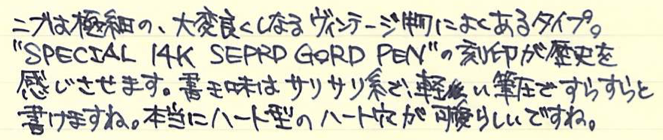 ニブは極細の、大変良くしなるヴィンテージ物によくあるタイプ。
"SPECIAL 14K SEPRD GORD PEN"の刻印が歴史を
感じさせます。書き味はサリサリ系で、軽い筆圧ですらすらと
書けますね。本当にハート型のハート穴が可愛らしいですね。